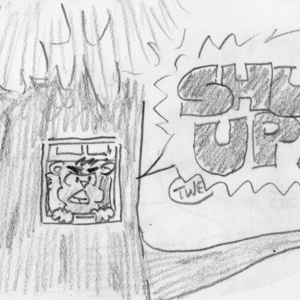 SHU
UP
TWE